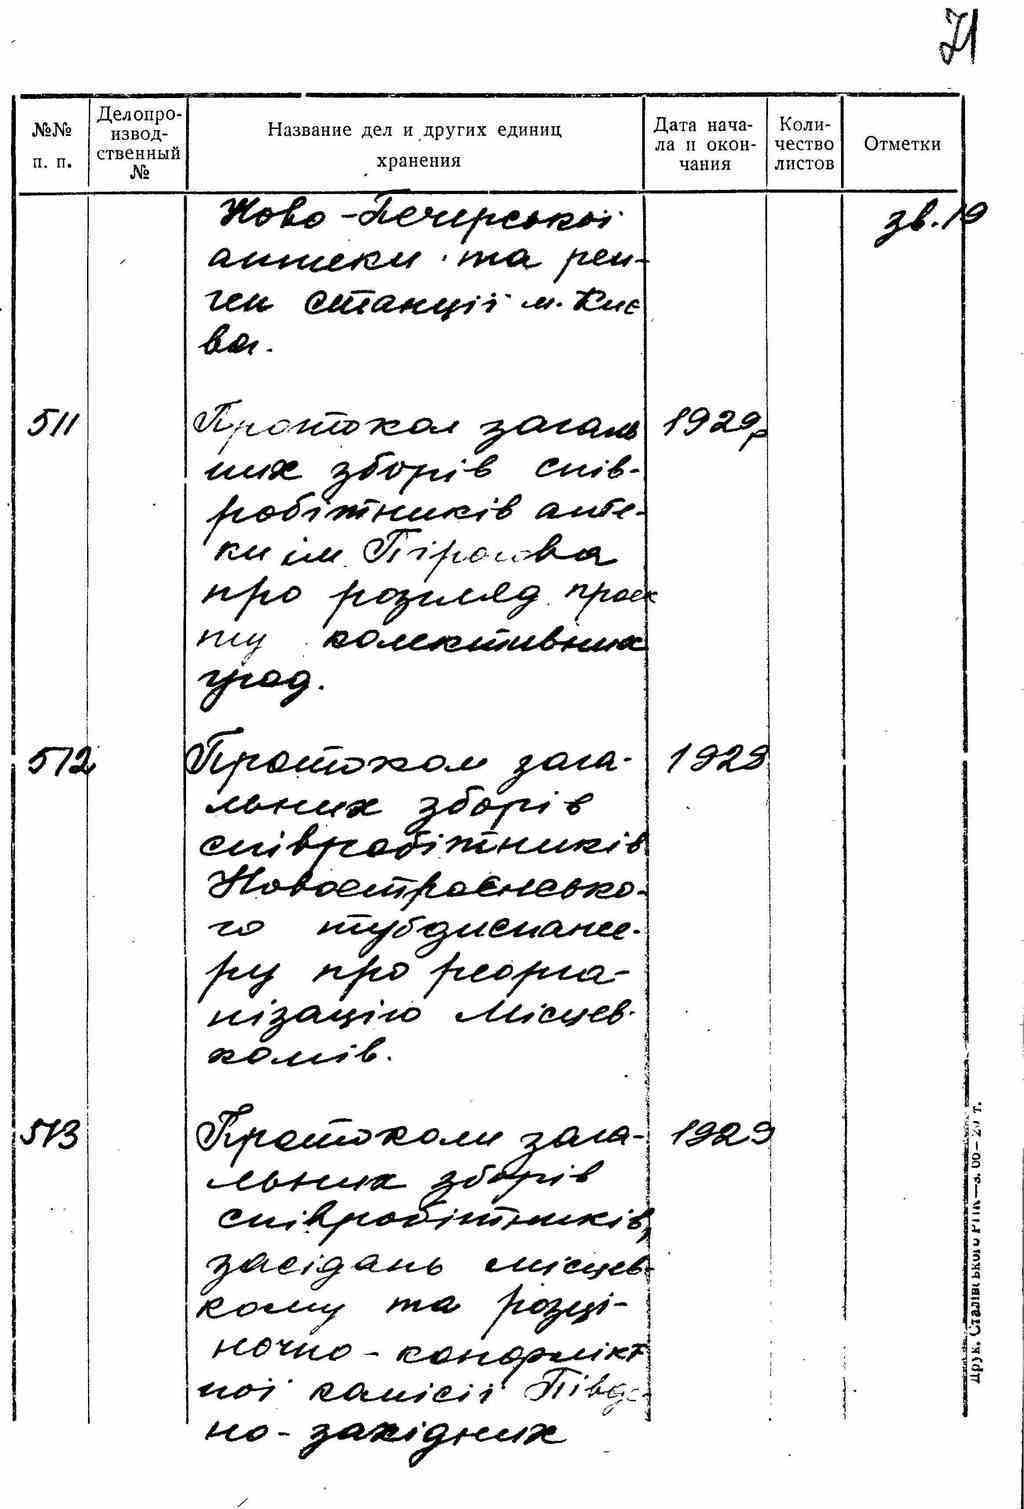 71
№№ п. п.
Делопроизводственный №
Название дел и других единиц хранения
Дата начала и окончания
Количество листов
Отметки
Ново-Печерської зв. 19
аптеки та рен-
ген станції м. Киє
ва.
511 Протокол загаль 1929р
них зборів спів-
робітників апте-
ки ім. Пірогова
про розгляд проек
ту колективних
угод.
512 Протокол зага- 1929
льних зборів
співробітників
Новостроєнсько-
го тубдиспансе-
ру про реорга-
нізацію місцев-
комів.
513 Протоколи зага- 1929
льних зборів
співробітників,
засідань місцев-
кому та розці-
ночно-конфлікт
ної комісії Півде-
но-західних
Друк. Сталінського